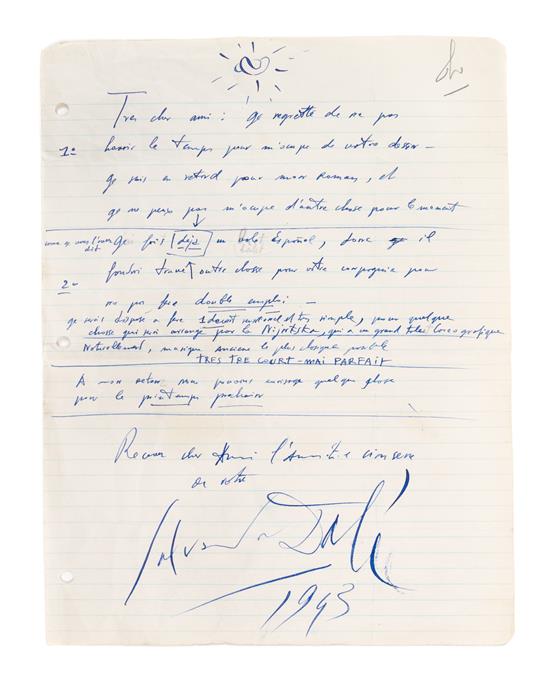 Tres cher ami: ge regrette de ne pas
1º havoir le temps pour m'ocupe de votre desir –
ge suis en retard pour mon Roman, et
ge ne peux pas m'ocupe d'autre chose pour le moment
ge fais déjà un balet Español, donc ge il
dit
2º foudrai trouve autre chose pour votre compagnie pour
ne pas fer double emploi –
ge suis dispose a fere 1 decort et tres simple, pour quelque
chose qui soi arrange par la Nijinska, qui a un grand talent coreografique
Naturellement, musique anciene le plus clasique posible
TRES TRE COURT – MAI PARFAIT
A mon retour nous pouvons envisage quelque chose
pour le printemps prochain
Recever cher Ami l'Amitie sinsere
de votre
Salvador Dalí
1943